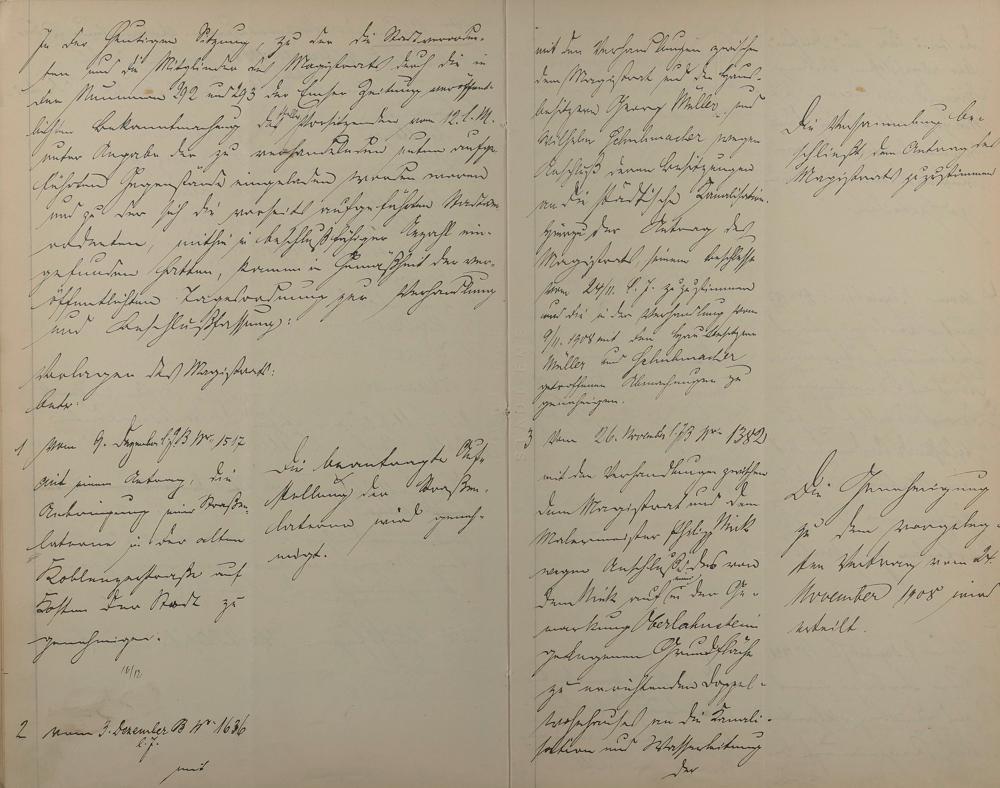 In der heutigen Sitzung, zu der die Stadtverordne-
ten und die Mitglieder des Magistrats durch die in
den Nummern 292 und 293 der Emser Zeitung veröffent-
lichten Bekanntmachung des Vorsitzenden vom 12. l. M.
unter Angabe der zu verhandelnden unten aufge-
führten Gegenstände eingeladen worden waren
und zu der sich die vorseits aufgeführten Stadtver-
ordneten, mithin in beschlußfähiger Anzahl ein-
gefunden hatten, kamen in Gemäßheit der ver-
öffentlichten Tagesordnung zur Verhandlung
und Beschlußfassung:
Vorlagen des Magistrats:
betr:
1 Vom 9. Dezember l. J. B Nr. 1517
mit einem Antrag, die
Anbringung einer Straßen-
laterne in der alten
Koblenzerstraße auf
Kosten der Stadt zu
genehmigen.
16/12.
Die beantragte Auf-
stellung der Straßen-
laterne wird geneh-
migt.
2 vom 3. Dezember B Nr. 1636
l. J.
mit
mit den Verhandlungen zwischen
dem Magistrat und den Haus-
besitzern Georg Müller und
Wilhelm Schuhmacher wegen
Anschluß deren Besitzungen
an die städtische Kanalisation.
Hierzu der Antrag des
Magistrats, seinem Beschlusse
vom 24/11. l. J. zuzustimmen
und die in der Verhandlung vom
9/11. 1908 mit den Hausbesitzern
Müller und Schuhmacher
getroffenen Abmachungen zu
genehmigen.
Die Versammlung be-
schließt, dem Antrag des
Magistrats zuzustimmen
3 Vom 26. November l. J. B Nr. 1382
mit den Verhandlungen zwischen
dem Magistrat und dem
Malermeister Philipp Mink
wegen Anschluß des von
dem Mink auf in der Ge-
markung Oberlahnstein
gelegenen Grundfläche
zu errichtenden Doppel-
wohnhauses an die Kanali-
sation und Wasserleitung
der
Die Genehmigung
zu dem vorgeleg-
ten Vertrag vom 24.
November 1908 wird
erteilt.